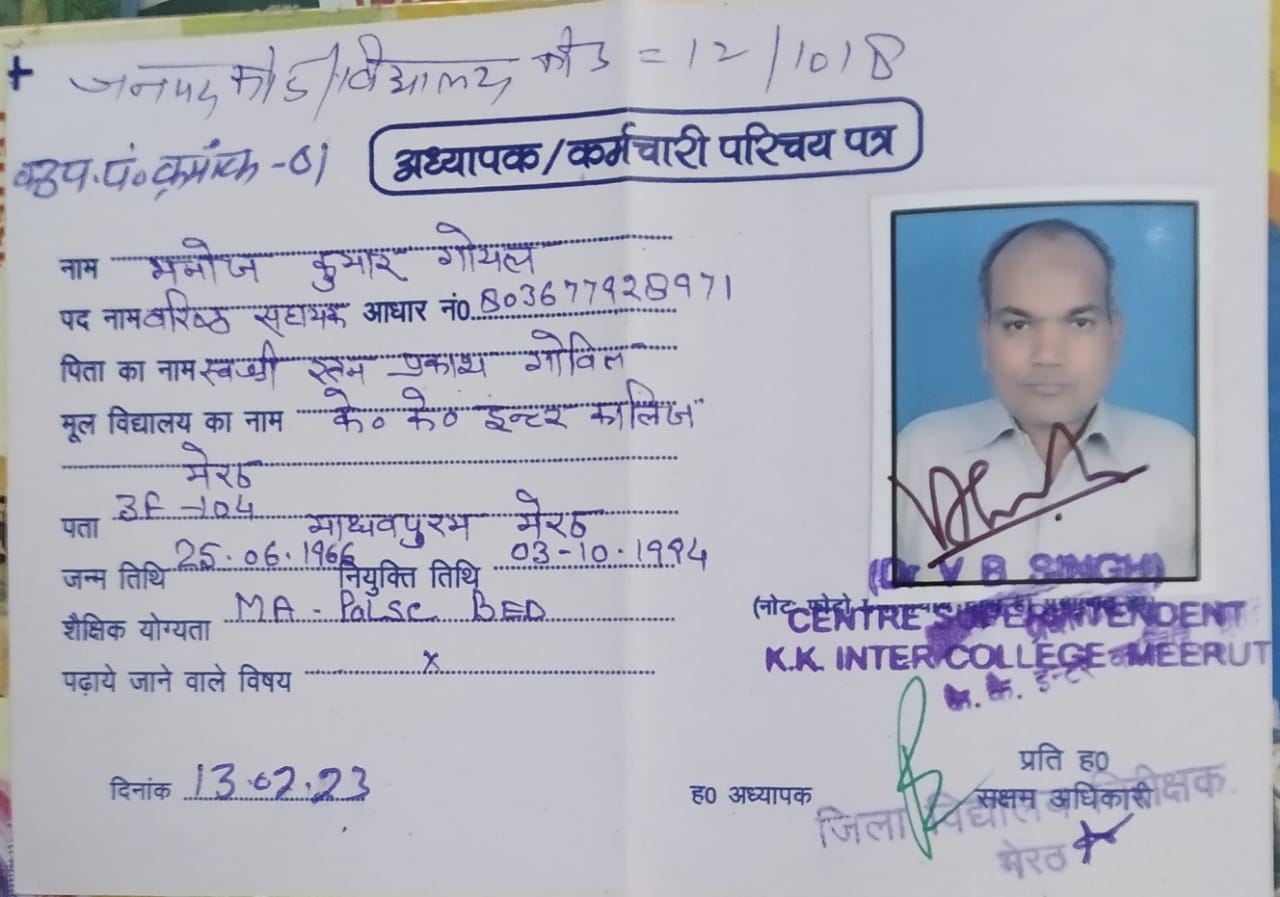 जनपद कोड/विद्यालय कोड = 12/1018
क्रमांक -01
अध्यापक/कर्मचारी परिचय पत्र
नाम मनोज कुमार गोयल
पद नाम वरिष्ठ सहायक आधार नं० 803677928971
पिता का नाम स्व श्री प्रकाश गोविल
मूल विद्यालय का नाम के० के० इन्टर कालिज
मेरठ
पता 3F-104 माधवपुरम मेरठ
जन्म तिथि 25.06.1966 नियुक्ति तिथि 03-10.1994
शैक्षिक योग्यता MA - Pol.Sc BED
पढ़ाये जाने वाले विषय x
(Dr V B SINGH)
(नोट फोटो
CENTRE SUPERINTENDENT
K.K. INTER COLLEGE MEERUT
के. के. इन्टर
दिनांक 13.02.23
ह0 अध्यापक
प्रति ह0
सक्षम अधिकारी
जिला विद्यालय निरीक्षक
मेरठ